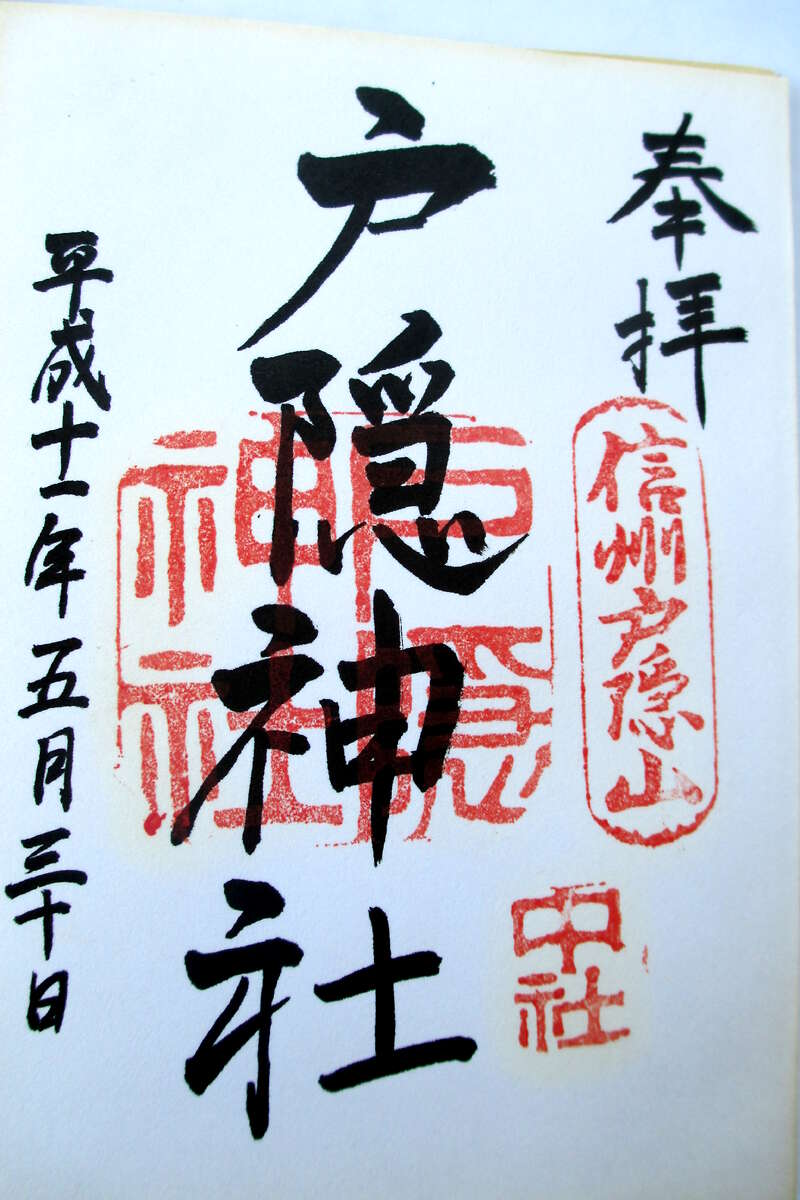 奉拝
信州戸隠山
中社
戸隠神社
戸隠
神社
平成十一年五月三十日